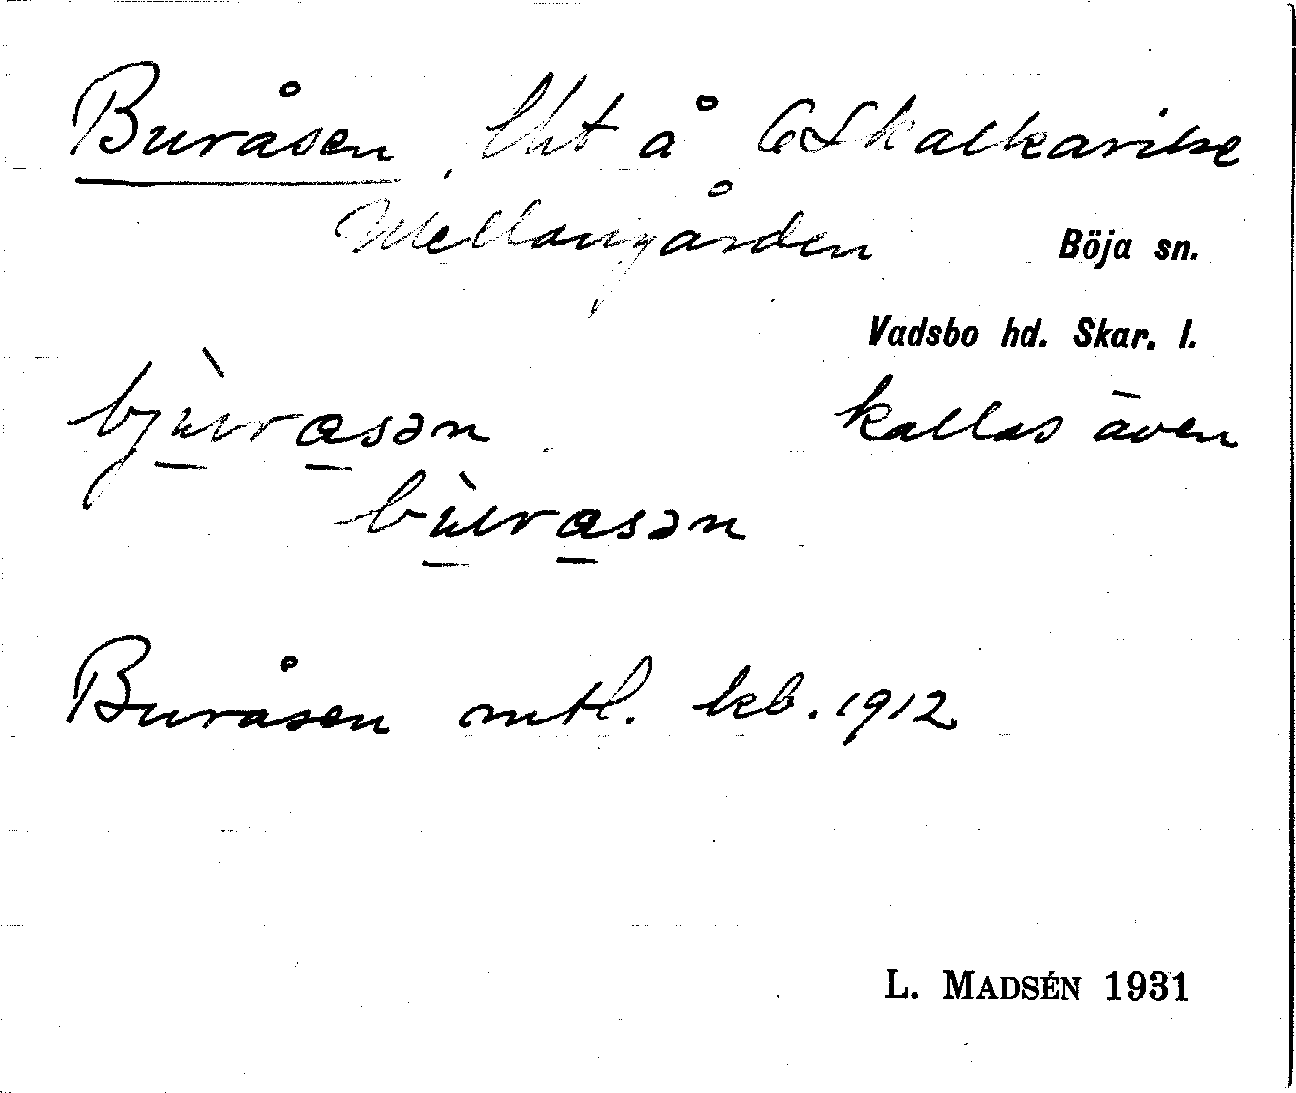 Buråsen, lht å 6 Skalkarike
Mellangården Böja sn.
Vadsbo hd. Skar. l.
bju̠̇̀rɑ̠sən kallas även
bu̠̇̀rɑ̠sən
Buråsen mtl. kb. 1912
L. MADSÉN 1931